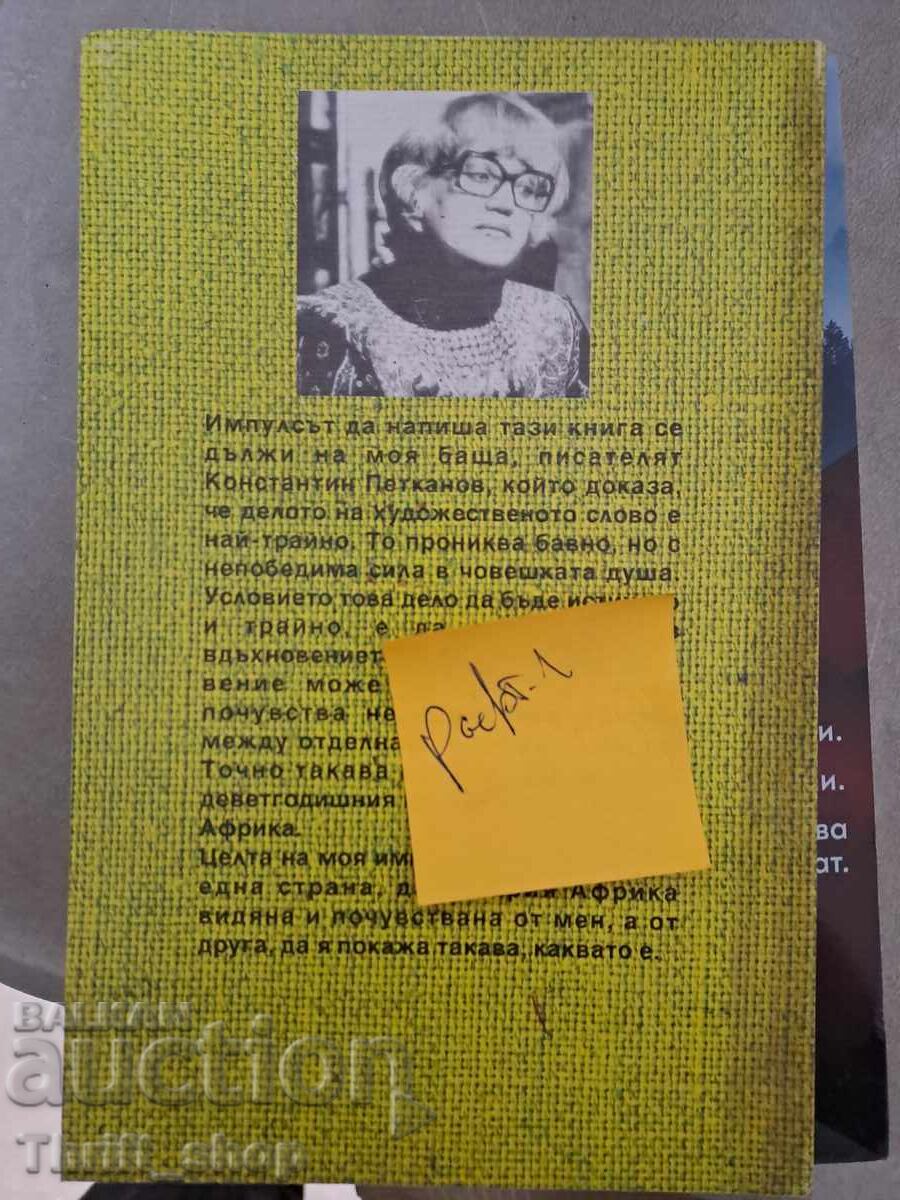 Импулсът да напиша тази книга се
дължи на моя баща, писателят
Константин Петканов, който доказа,
че делото на художественото слово е
най-трайно. То прониква бавно, но с
непобедима сила в човешката душа.
Условието това дело да бъде
и трайно, е да
вдъхновениет
вение може
почувства не
между отделна
Точно такава
деветгодишния
Африка.
Целта на моя им
една страна, Африка
видяна и почувствана от мен, а от
друга, да я покажа такава, каквато е.
и.
и.
ва
ат.
БАЛКАН
auction
Thrift_shop